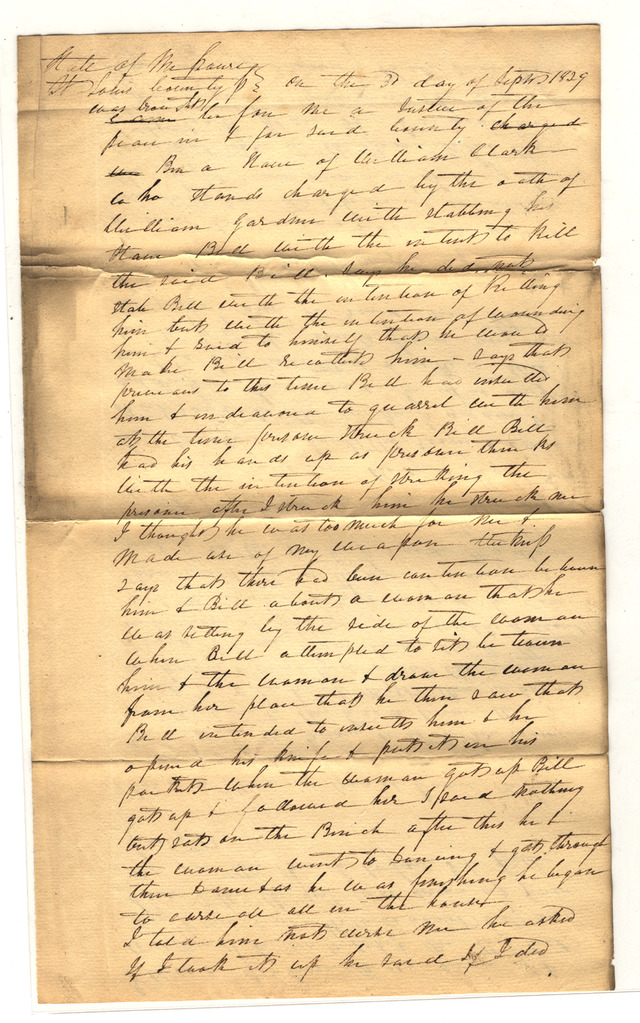 State of Missouri
St Louis County SS on the 3d day of Septr 1829
was brought before me a Justice of the
peace in & for said County charged
Ben a Slave of William Clark
who Stands charged by the oath of
William Gardner with stabbing his
Slave Bill with the intent to Kill
the said Bill. Says he did not
stab Bill with the intention of Killing
him but with the intention of wounding
him & said to himself that he would
Make Bill Recollect him - Says that
previous to this time Bill had insulted
him & indeavored to quarrel with him
at the time prisoner Struck Bill Bill
had his hands up as prisoner thinks
with the intention of striking the
prisoner after I struck him he struck me
I thought he was too much for me &
Made use of my weapon the Knife
Says that there had been contention between
him & Bill about a woman that he
was setting by the side of the woman
when Bill attempted to sit between
him & the woman & drove the woman
from her place that he then saw that
Bill intended to insult him & he
opened his knife & put it in his
pocket when the woman got up Bill
got up & followed her I said nothing
but sat on the Bench after this he &
the woman went to Dancing & got through
their Dance & as he was finishing he began
to curse all in the house
I told him not curse me he asked
If I took it up he said If I did